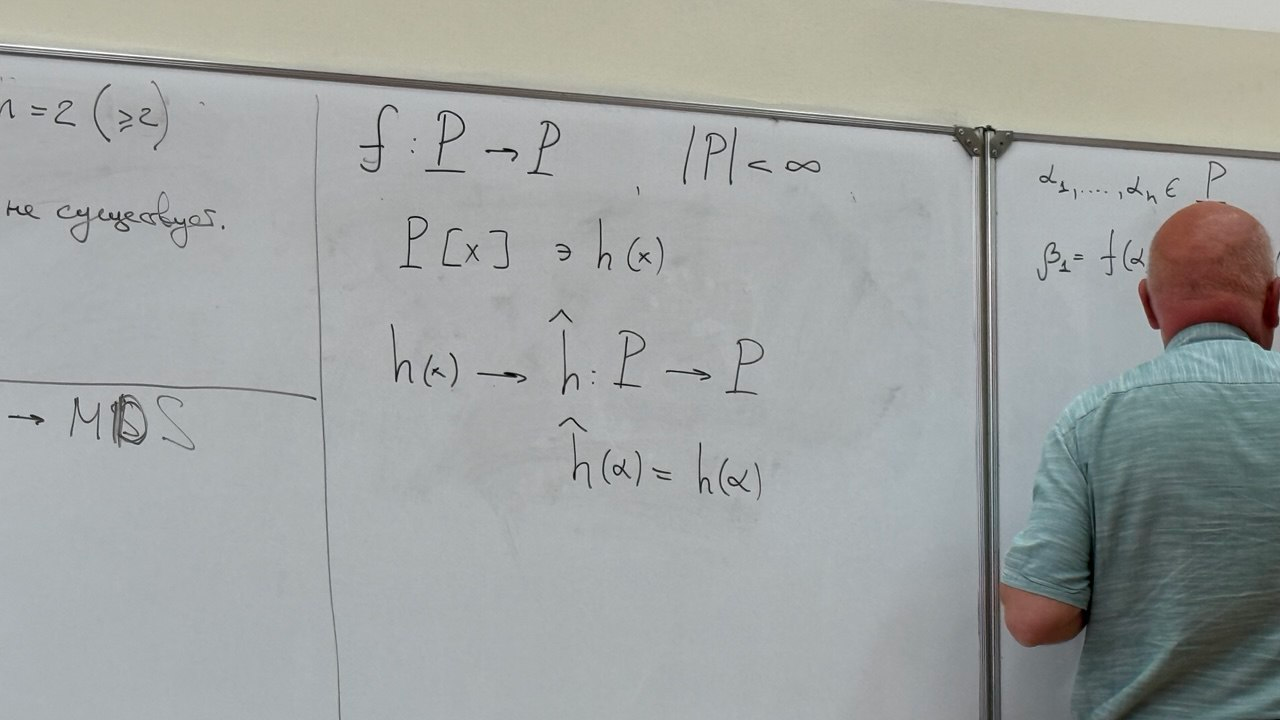 n = 2 (⩾2)
не существует.
→ MDS
f : P → P , |P| < ∞
P [x] ∋ h(x)
h(x) → ĥ : P → P
ĥ(α) = h(α)
α₁, ...., αₙ ∈ P
β₁ = f(α